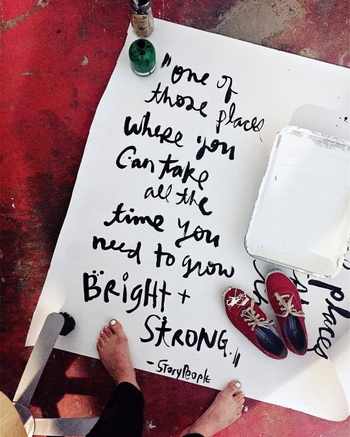 "one of
those places
where you
can take
all the
time you
need to grow
BRIGHT +
STRONG."
- StoryPeople
places